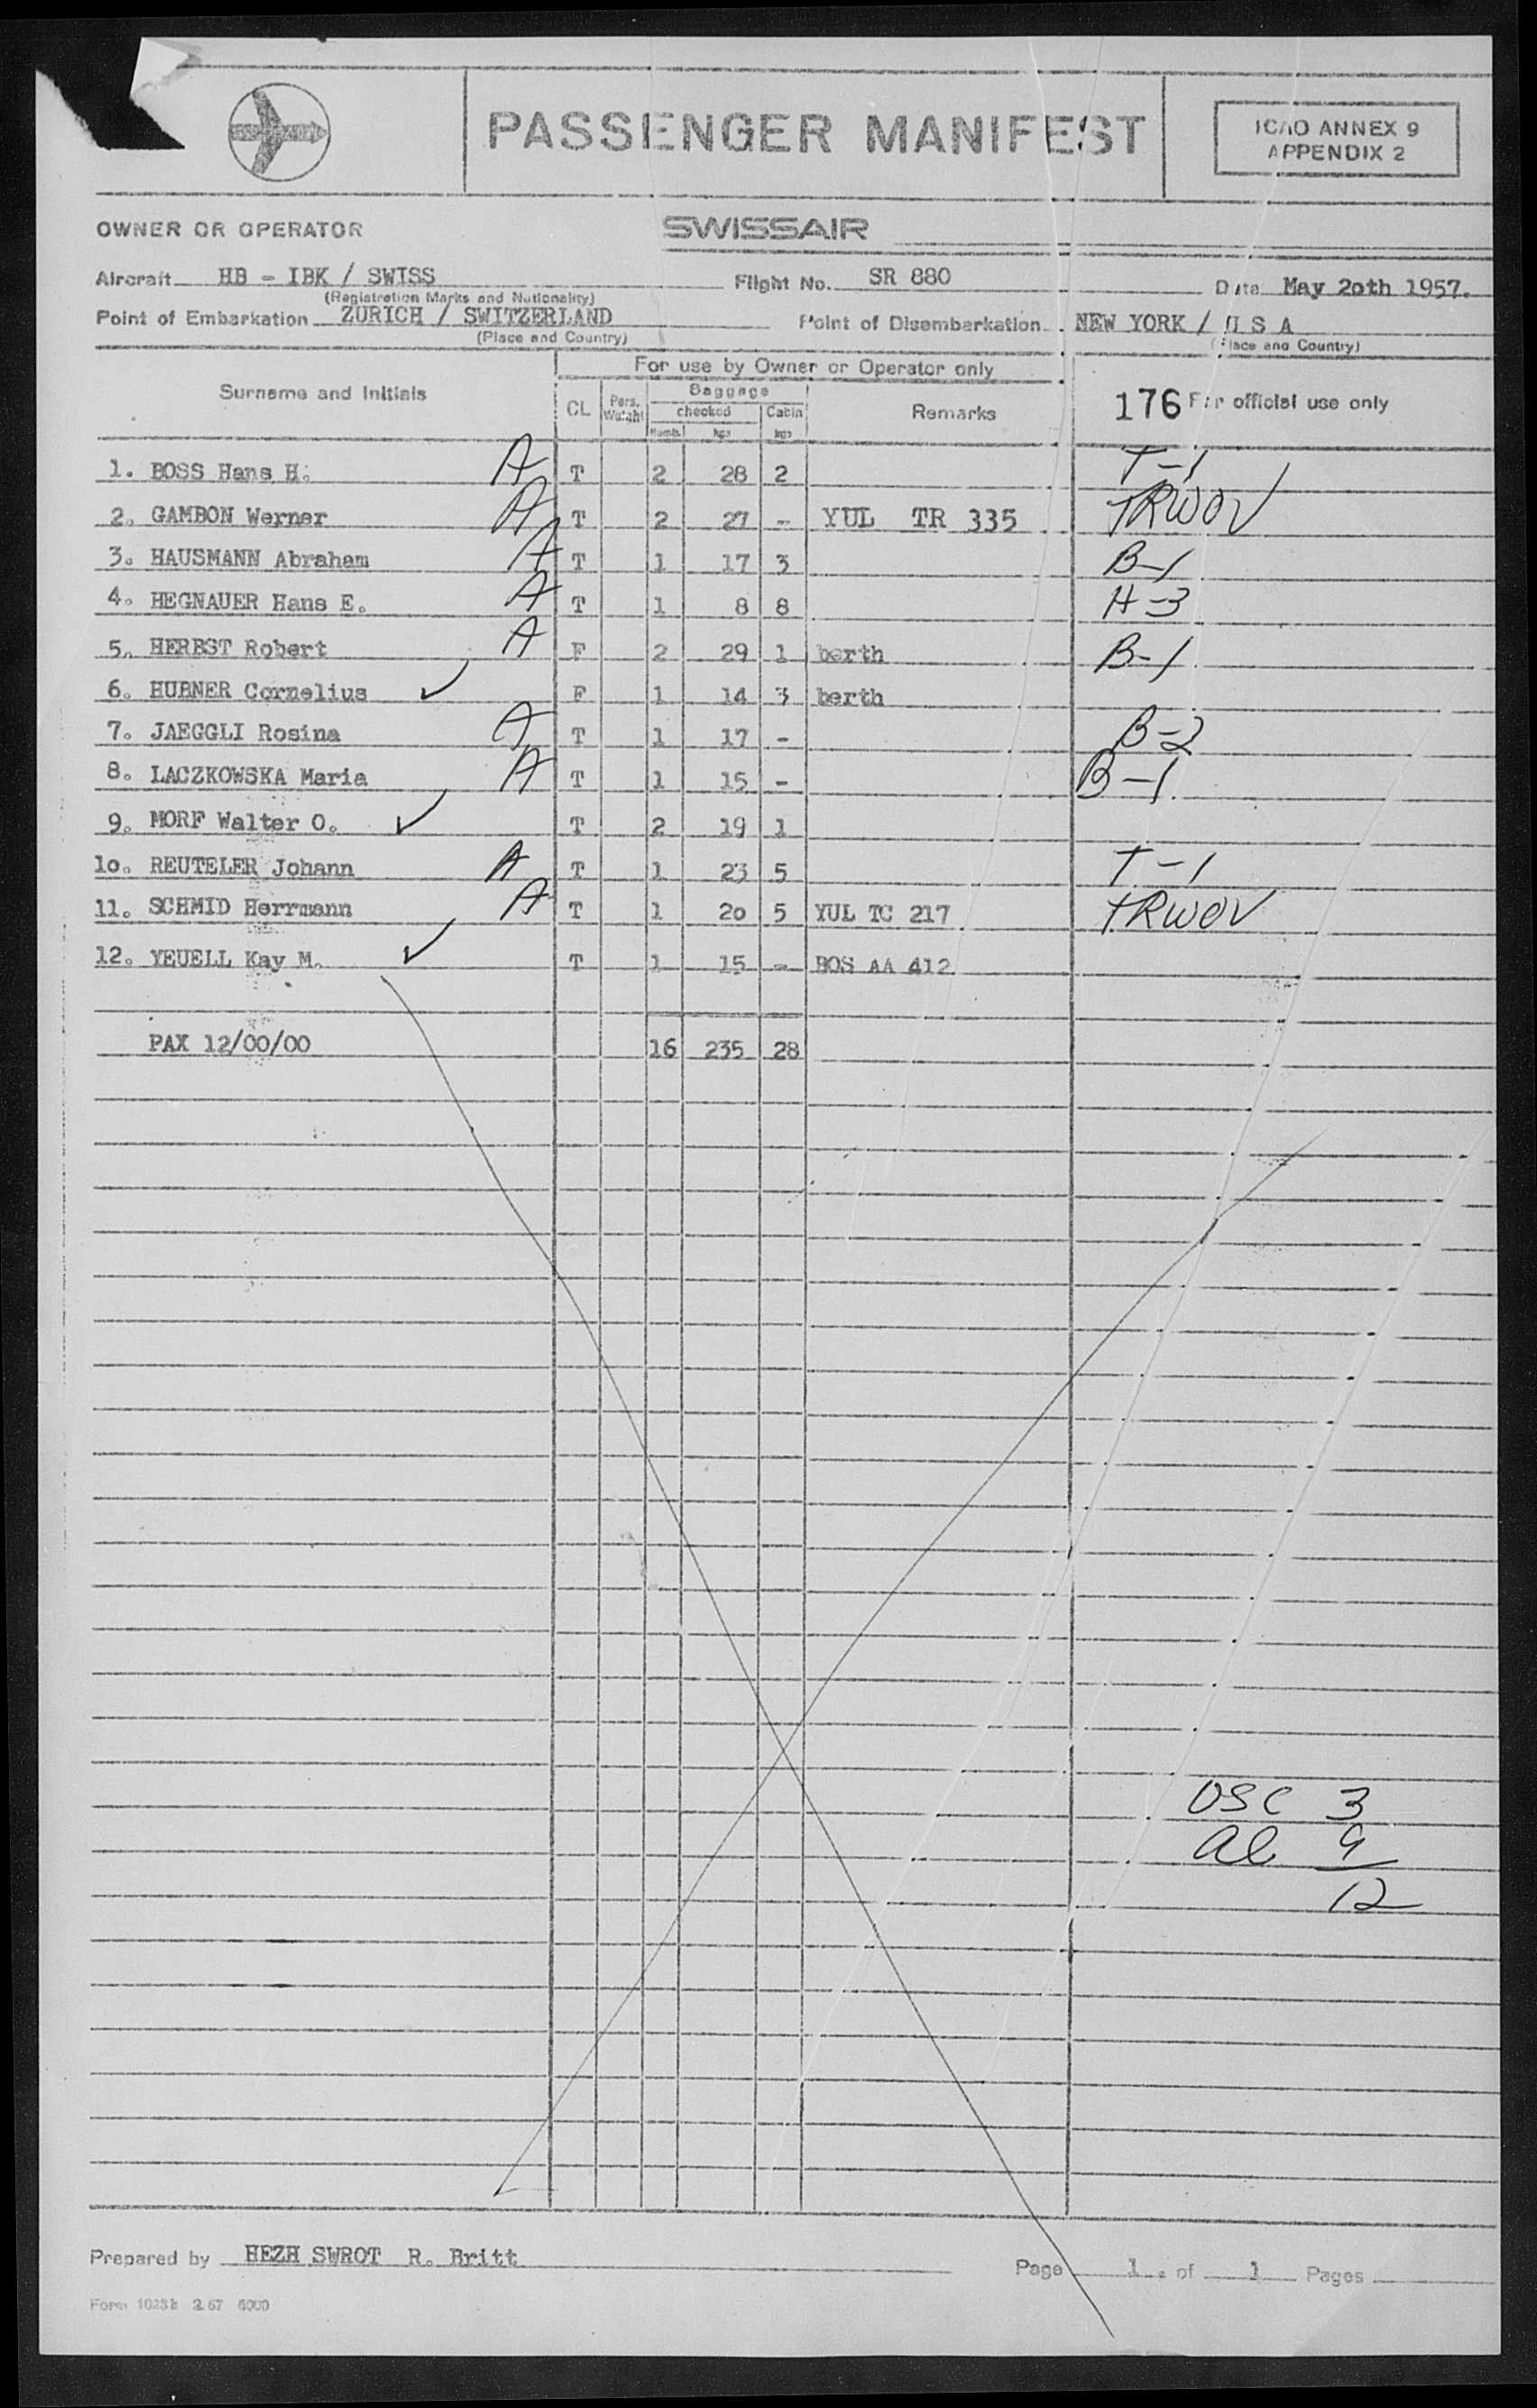 PASSENGER MANIFEST
ICAO ANNEX 9
APPENDIX 2
OWNER OR OPERATOR SWISSAIR
Aircraft HB - IBK / SWISS Flight No. SR 880 Date May 20th 1957.
(Registration Marks and Nationality)
Point of Embarkation ZURICH / SWITZERLAND Point of Disembarkation NEW YORK / U S A
(Place and Country) (Place and Country)
For use by Owner or Operator only
Surname and Initials CL Pers. Weight Baggage Remarks 176 For official use only
checked Cabin
Numb. kgs kgs
1. BOSS Hans H. A T 2 28 2 T-1
2. GAMBON Werner A T 2 27 - YUL TR 335 TRWOV
3. HAUSMANN Abraham A T 1 17 3 B-1
4. HEGNAUER Hans E. A T 1 8 8 H-3
5. HERBST Robert A F 2 29 1 berth B-1
6. HUBNER Cornelius ✓ F 1 14 3 berth
7. JAEGGLI Rosina A T 1 17 - B-2
8. LACZKOWSKA Maria A T 1 15 - B-1
9. MORF Walter O. ✓ T 2 19 1
10. REUTELER Johann A T 1 23 5 T-1
11. SCHMID Herrmann A T 1 20 5 YUL TC 217 TRWOV
12. YEUELL Kay M. ✓ T 1 15 - BOS AA 412
PAX 12/00/00 16 235 28
USC 3
al 9
12
Prepared by HEZH SWROT R. Britt Page 1 of 1 Pages
Form